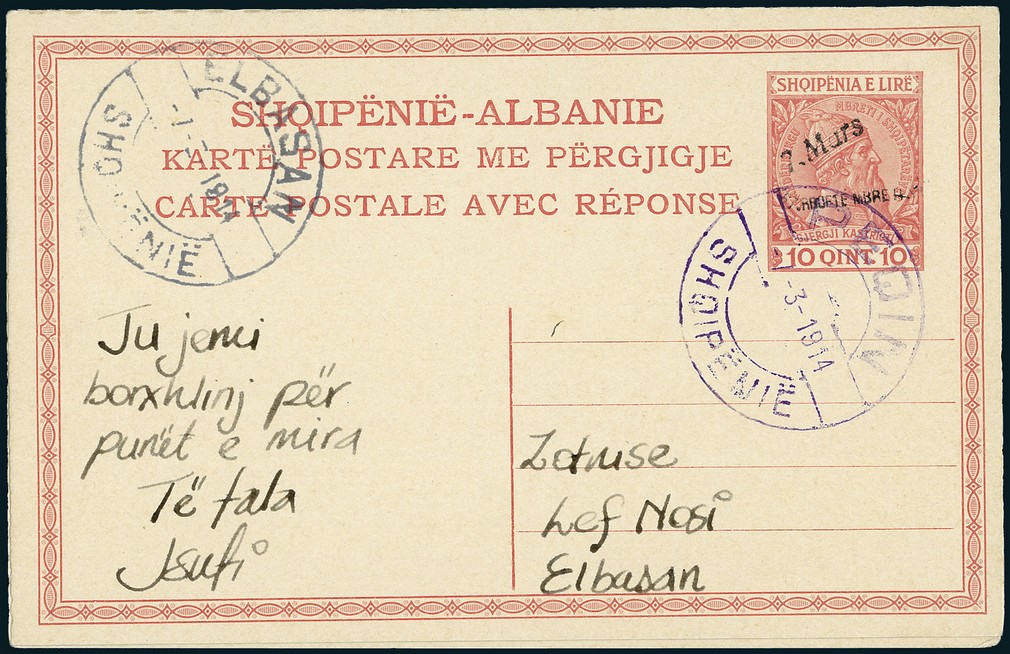 SHQIPËNIË-ALBANIE
KARTË POSTARE ME PËRGJIGJE
CARTE POSTALE AVEC RÉPONSE
SHQIPËNIA E LIRË
MBRETI I SHQIPTARËVET
Mars
GJERGJI KASTRIOTI
10 QINT. 10
ELBASAN
1914
SHQIPËNIË
3-1914
SHQIPËNIË
Ju jemi
borxhlinj për
punët e mira
Të fala
Jsufi
Zotnise
Lef Nosi
Elbasan